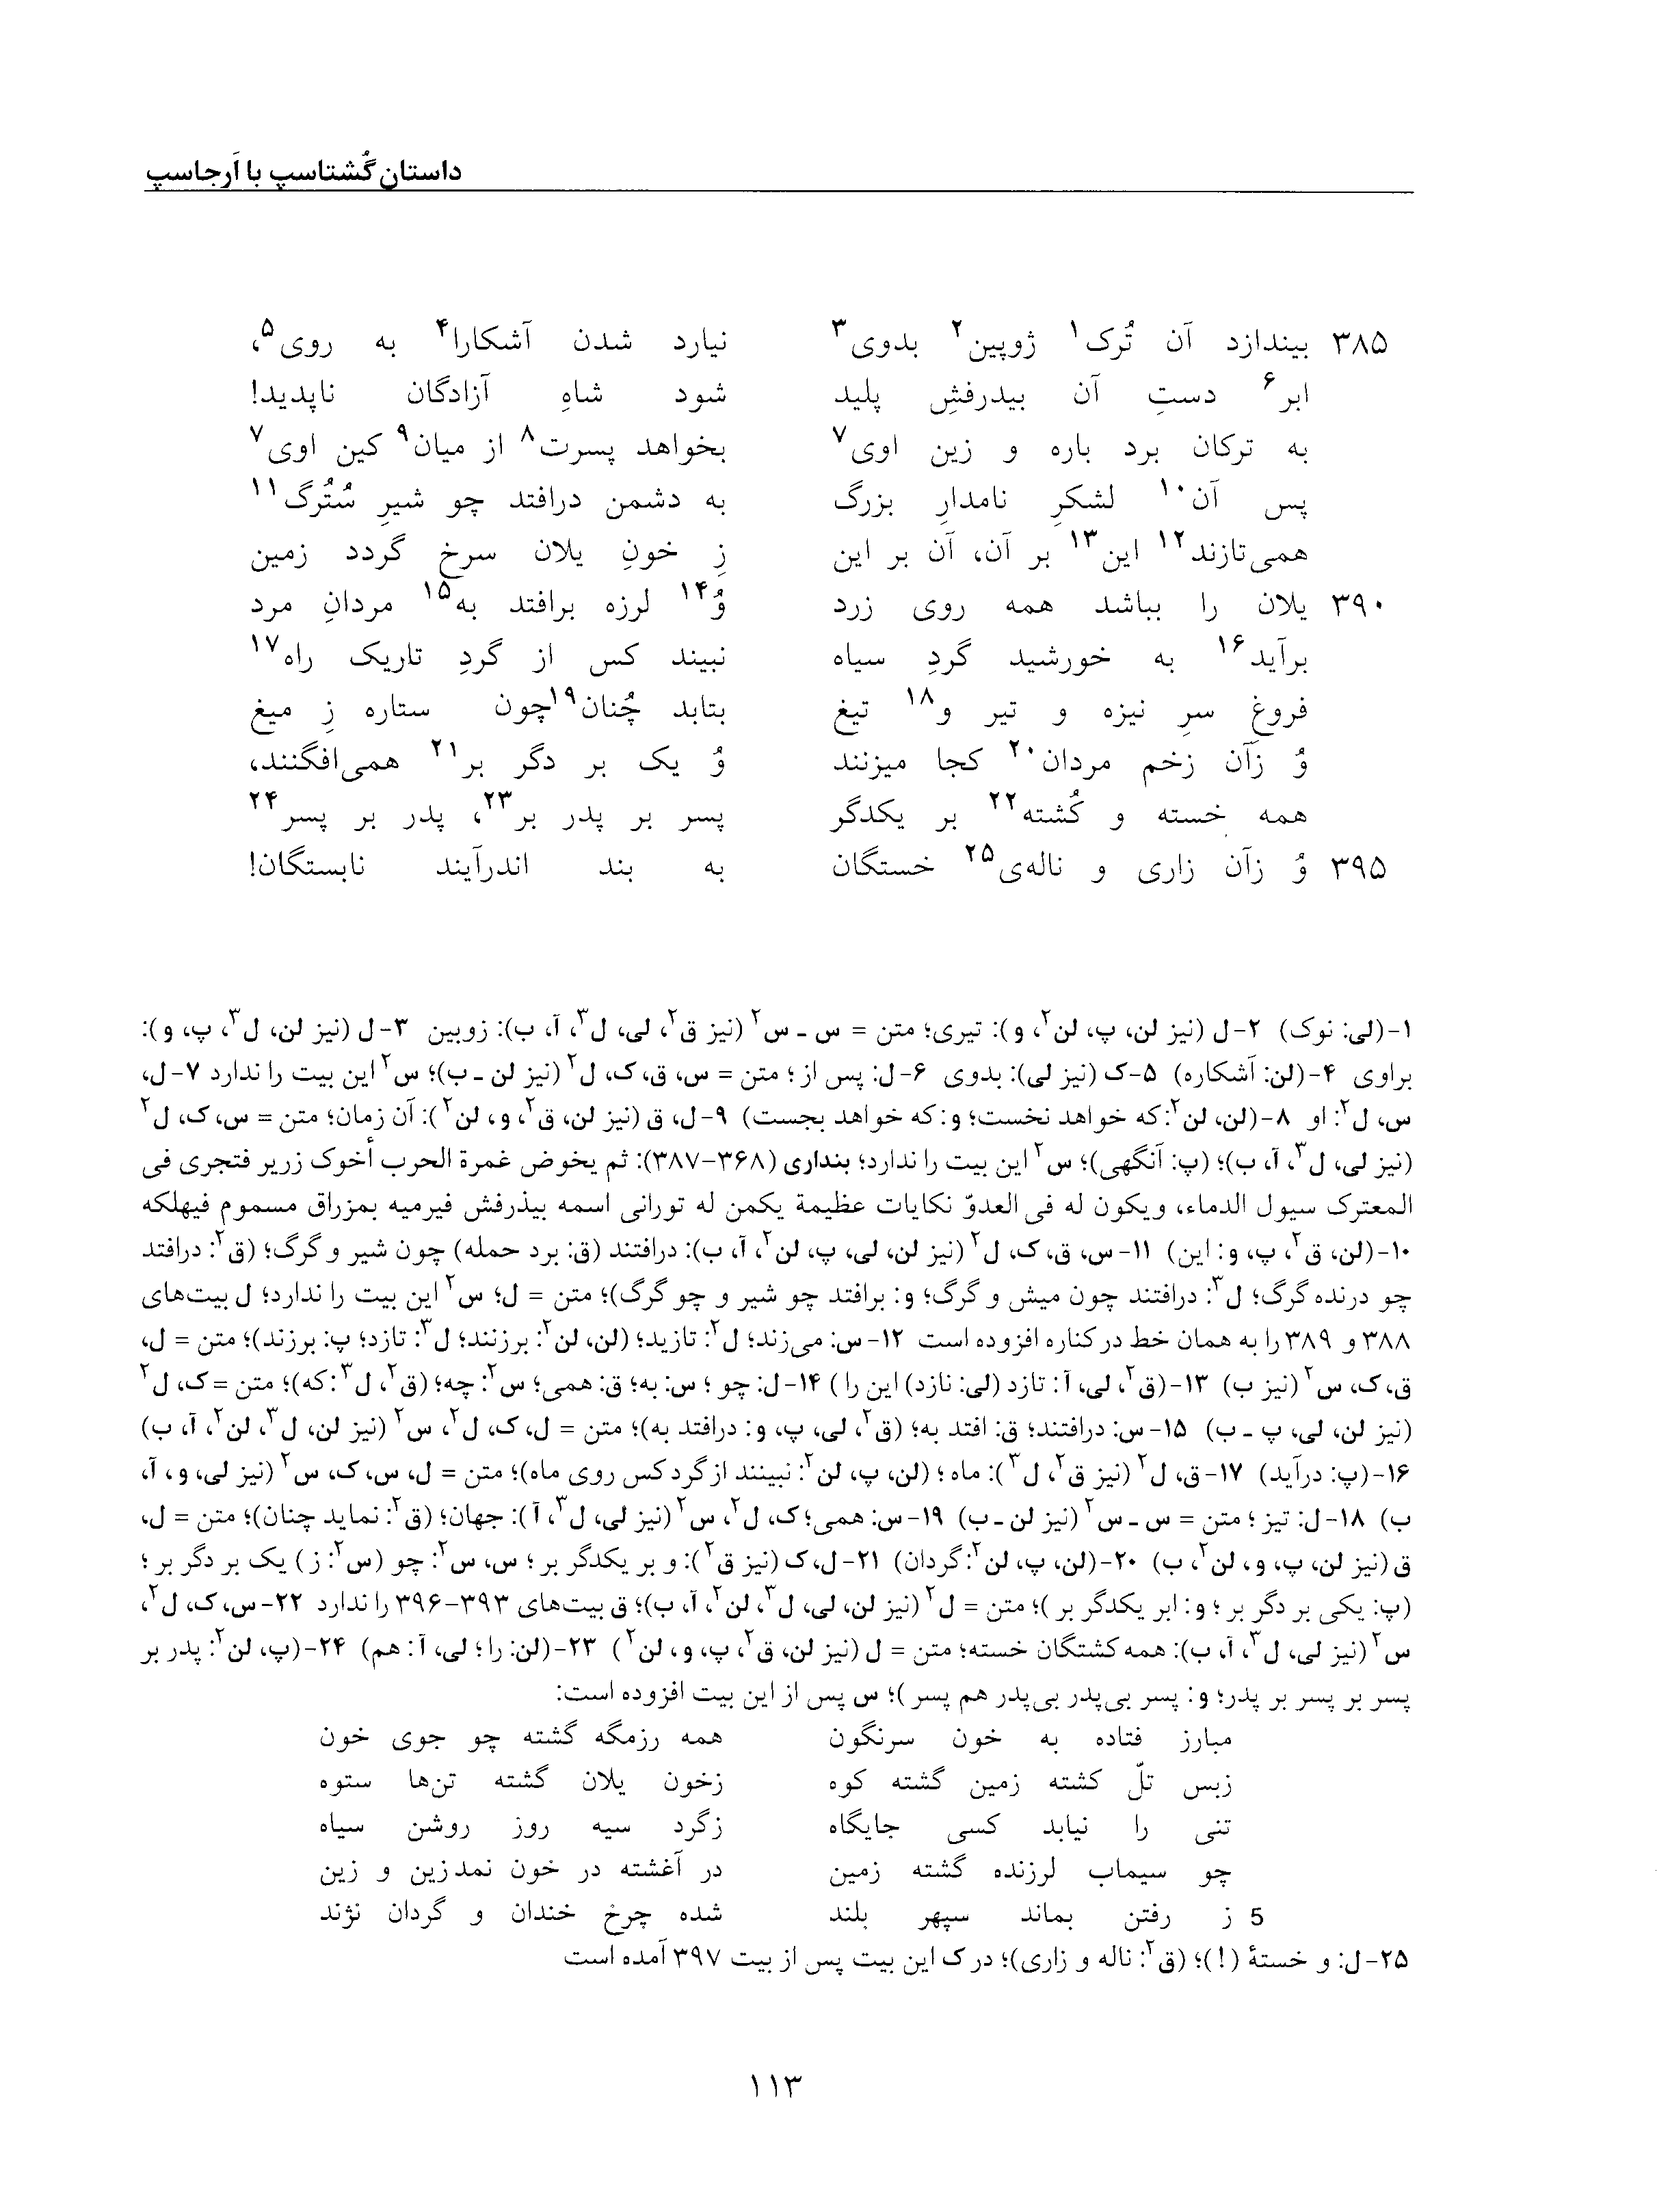 داستان گُشتاسپ با اَرجاسپ
۳۸۵ بیندازد آن تُرک۱ ژوپین۲ بدوی۳ نیارد شدن آشکارا۴ به روی۵،
ابر۶ دستِ آن بیدرفشِ پلید شود شاهِ آزادگان ناپدید!
به ترکان برد باره و زین اوی۷ بخواهد پسرت۸ از میان۹ کین اوی۷
پس آن۱۰ لشکرِ نامدارِ بزرگ به دشمن درافتد چو شیرِ سُتُرگ۱۱
همی‌تازند۱۲ این۱۳ بر آن، آن بر این زِ خونِ یلان سرخ گردد زمین
۳۹۰ یلان را بباشد همه روی زرد وُ۱۴ لرزه برافتد به۱۵ مردانِ مرد
برآید۱۶ به خورشید گردِ سیاه نبیند کس از گردِ تاریک راه۱۷
فروغِ سرِ نیزه و تیر و۱۸ تیغ بتابد چُنان۱۹چون ستاره زِ میغ
وُ زآن زخم مردان۲۰ کجا میزنند وُ یک بر دگر بر۲۱ همی‌افگنند،
همه خسته و کُشته۲۲ بر یکدگر پسر بر پدر بر۲۳، پدر بر پسر۲۴
۳۹۵ وُ زآن زاری و ناله‌ی۲۵ خستگان به بند اندرآیند نابستگان!
۱-(لی: نوک) ۲-ل (نیز لن، پ، لن۲، و): تیری؛ متن = س ـ س۲ (نیز ق۲، لی، ل۳، آ، ب): زوبین ۳-ل (نیز لن، ل۳، پ، و):
براوی ۴-(لن: آشکاره) ۵-ک (نیز لی): بدوی ۶-ل: پس از؛ متن = س، ق، ک، ل۲ (نیز لن ـ ب)؛ س۲ این بیت را ندارد ۷-ل،
س، ل۲: او ۸-(لن، لن۲:که خواهد نخست؛ و:که خواهد بجست) ۹-ل، ق (نیز لن، ق۲، و، لن۲): آن زمان؛ متن = س، ک، ل۲
(نیز لی، ل۳، آ، ب)؛ (پ: آنگهی)؛ س۲ این بیت را ندارد؛ بنداری (۳۶۸-۳۸۷): ثم یخوض غمرة الحرب أخوک زریر فتجری فی
المعترک سیول الدماء، ویکون له فی العدوّ نکایات عظیمة یکمن له تورانی اسمه بیذرفش فیرمیه بمزراق مسموم فیهلکه
۱۰-(لن، ق۲، پ، و: این) ۱۱-س، ق، ک، ل۲ (نیز لن، لی، پ، لن۲، آ، ب): درافتند (ق: برد حمله) چون شیر و گرگ؛ (ق۲: درافتد
چو درنده گرگ؛ ل۳: درافتند چون میش و گرگ؛ و: برافتد چو شیر و چو گرگ)؛ متن = ل؛ س۲ این بیت را ندارد؛ ل بیت‌های
۳۸۸ و ۳۸۹ را به همان خط در کناره افزوده است ۱۲-س: می‌زند؛ ل۲: تازید؛ (لن، لن۲: برزنند؛ ل۳: تازد؛ پ: برزند)؛ متن = ل،
ق، ک، س۲ (نیز ب) ۱۳-(ق۲، لی، آ: تازد (لی: نازد) این را) ۱۴-ل: چو ؛ س: به؛ ق: همی؛ س۲: چه؛ (ق۲، ل۳:که)؛ متن = ک، ل۲
(نیز لن، لی، پ ـ ب) ۱۵-س: درافتند؛ ق: افتد به؛ (ق۲، لی، پ، و: درافتد به)؛ متن = ل، ک، ل۲، س۲ (نیز لن، ل۳، لن۲، آ، ب)
۱۶-(پ: درآید) ۱۷-ق، ل۲ (نیز ق۲، ل۳): ماه؛ (لن، پ، لن۲: نبینند از گرد کس روی ماه)؛ متن = ل، س، ک، س۲ (نیز لی، و، آ،
ب) ۱۸-ل: تیز ؛ متن = س ـ س۲ (نیز لن ـ ب) ۱۹-س: همی؛ ک، ل۲، س۲ (نیز لی، ل۳، آ): جهان؛ (ق۲: نماید چنان)؛ متن = ل،
ق (نیز لن، پ، و، لن۲، ب) ۲۰-(لن، پ، لن۲:گردان) ۲۱-ل، ک (نیز ق۲): و بر یکدگر بر ؛ س، س۲: چو (س۲: ز) یک بر دگر بر ؛
(پ: یکی بر دگر بر ؛ و: ابر یکدگر بر )؛ متن = ل۲ (نیز لن، لی، ل۳، لن۲، آ، ب)؛ ق بیت‌های ۳۹۳-۳۹۶ را ندارد ۲۲-س، ک، ل۲،
س۲ (نیز لی، ل۳، آ، ب): همه کشتگان خسته؛ متن = ل (نیز لن، ق۲، پ، و، لن۲) ۲۳-(لن: را؛ لی، آ: هم) ۲۴-(پ، لن۲: پدر بر
پسر بر پسر بر پدر؛ و: پسر بی‌پدر بی‌پدر هم پسر )؛ س پس از این بیت افزوده است:
مبارز فتاده به خون سرنگون همه رزمگه گشته چو جوی خون
زبس تلّ کشته زمین گشته کوه زخون یلان گشته تن‌ها ستوه
تنی را نیابد کسی جایگاه زگرد سیه روز روشن سیاه
چو سیماب لرزنده گشته زمین در آغشته در خون نمد زین و زین
5 ز رفتن بماند سپهر بلند شده چرخ خندان و گردان نژند
۲۵-ل: و خستهٔ (!)؛ (ق۲: ناله و زاری)؛ در ک این بیت پس از بیت ۳۹۷ آمده است
۱۱۳